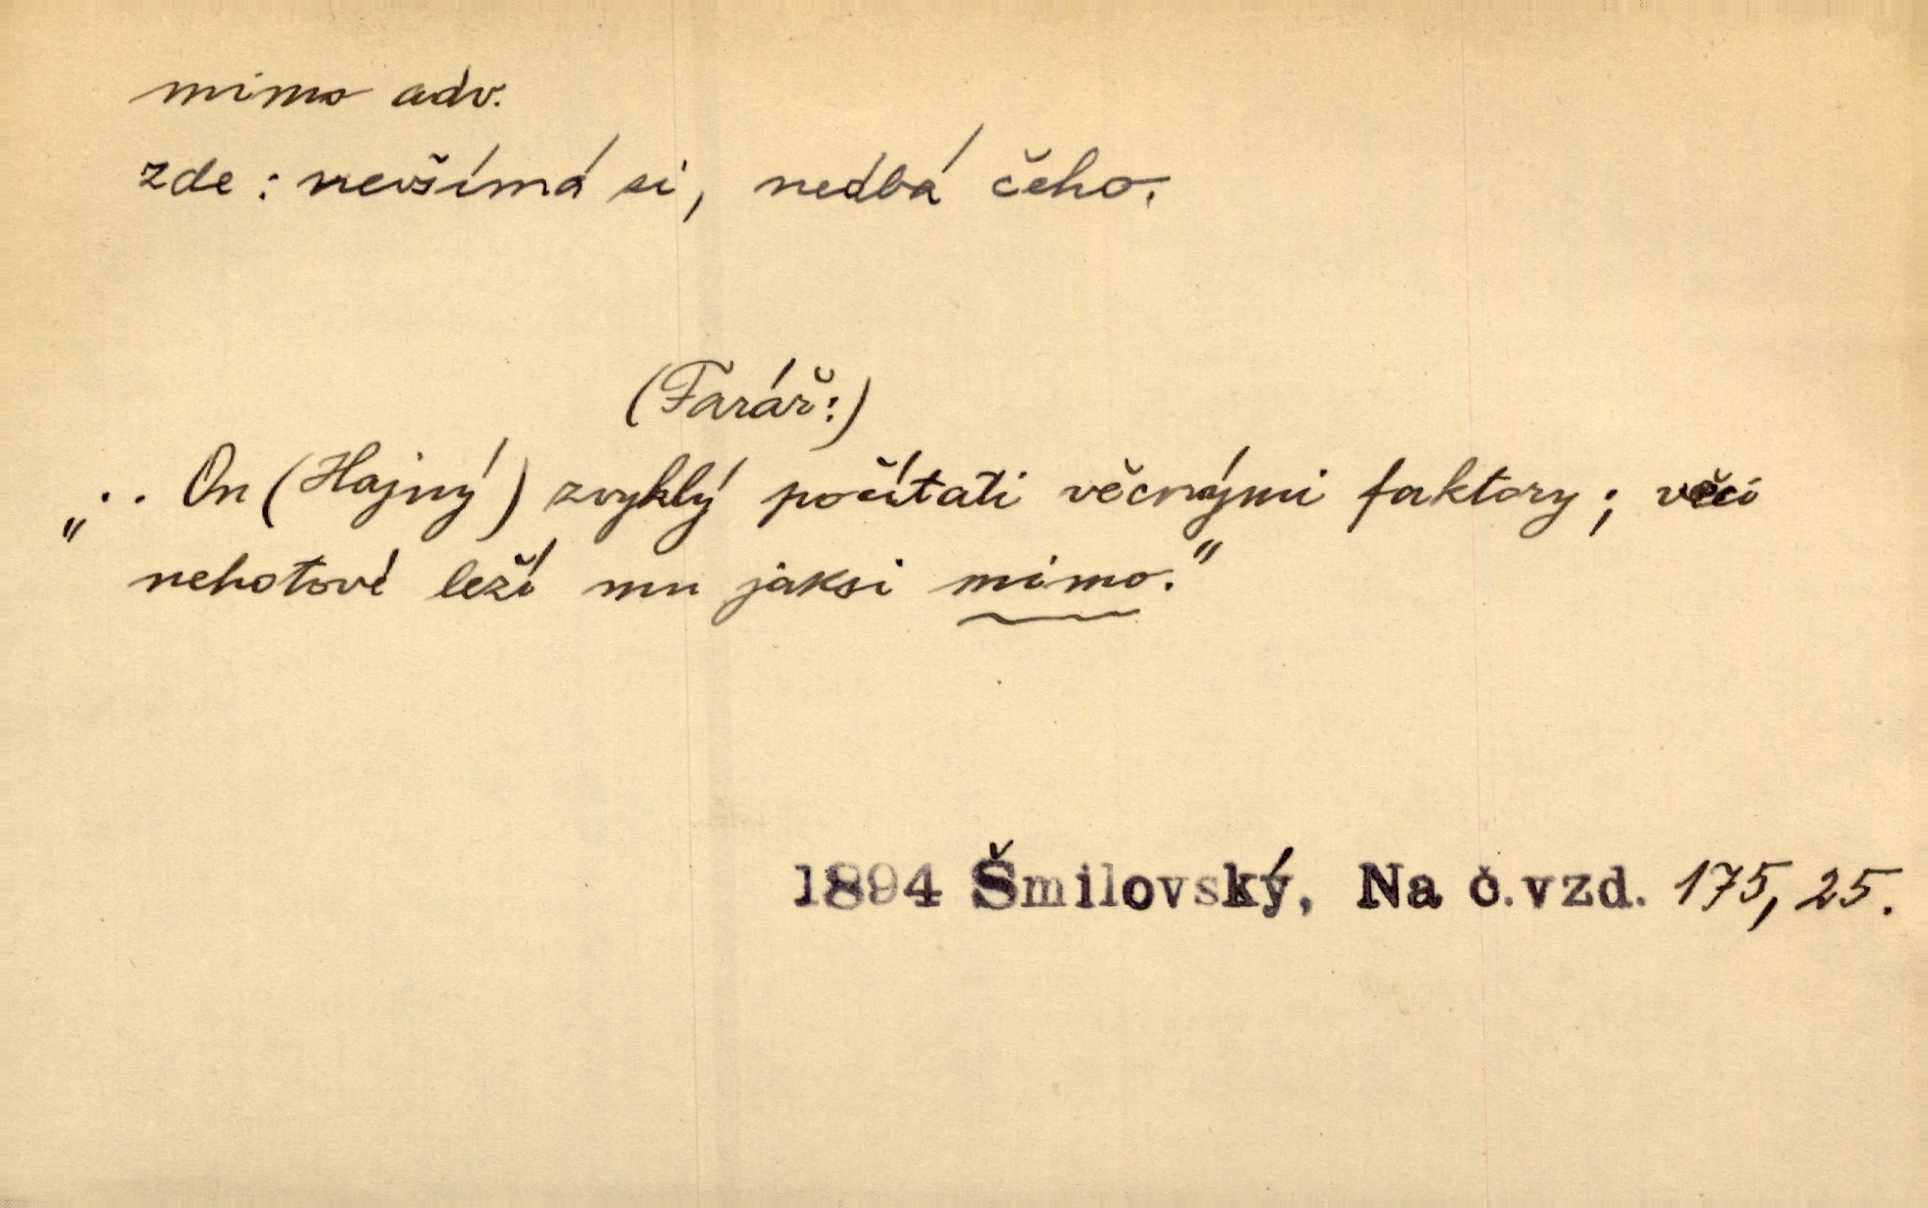 mimo adv.
zde: nevšímá si, nedbá čeho.
(Farář:)
„.. On (Hajný) zvyklý počítati věcnými faktory; věci
nehotové leží mu jaksi mimo."
1894 Šmilovský, Na č.vzd. 175, 25.